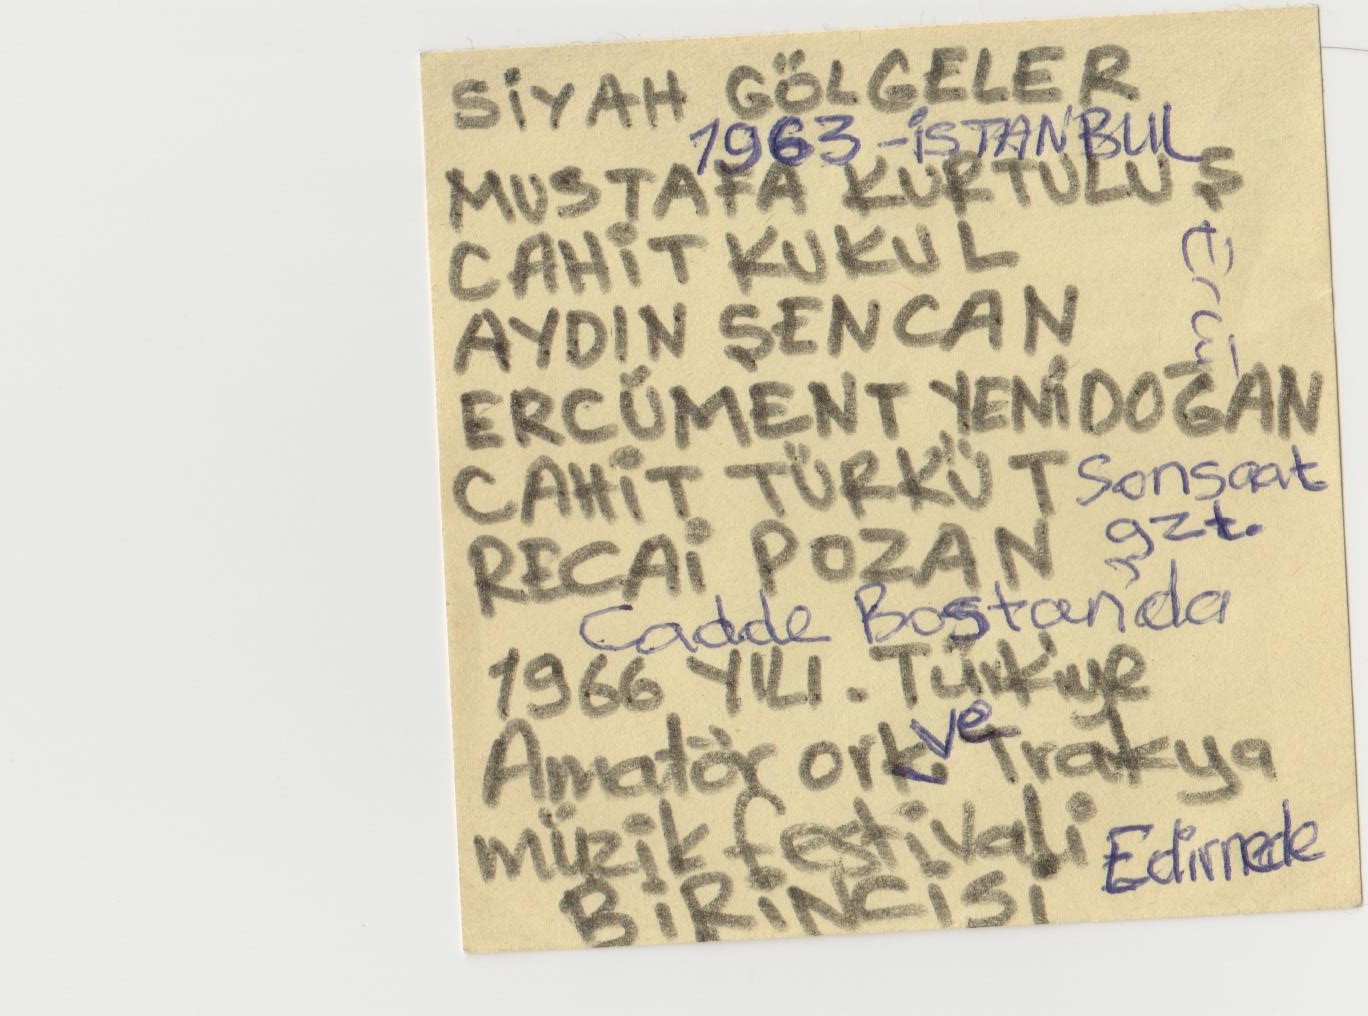 SİYAH GÖLGELER
1963 - İSTANBUL
MUSTAFA KURTULUŞ
CAHİT KUKUL
AYDIN ŞENCAN
ERCÜMENT YENİDOĞAN
CAHİT TÜRKÜT Sonsaat
gzt.
RECAİ POZAN
Cadde Bostan'da
1966 YILI. Türkiye
Amatör ork. ve Trakya
müzik festivali
Edirnede
BİRİNCİSİ